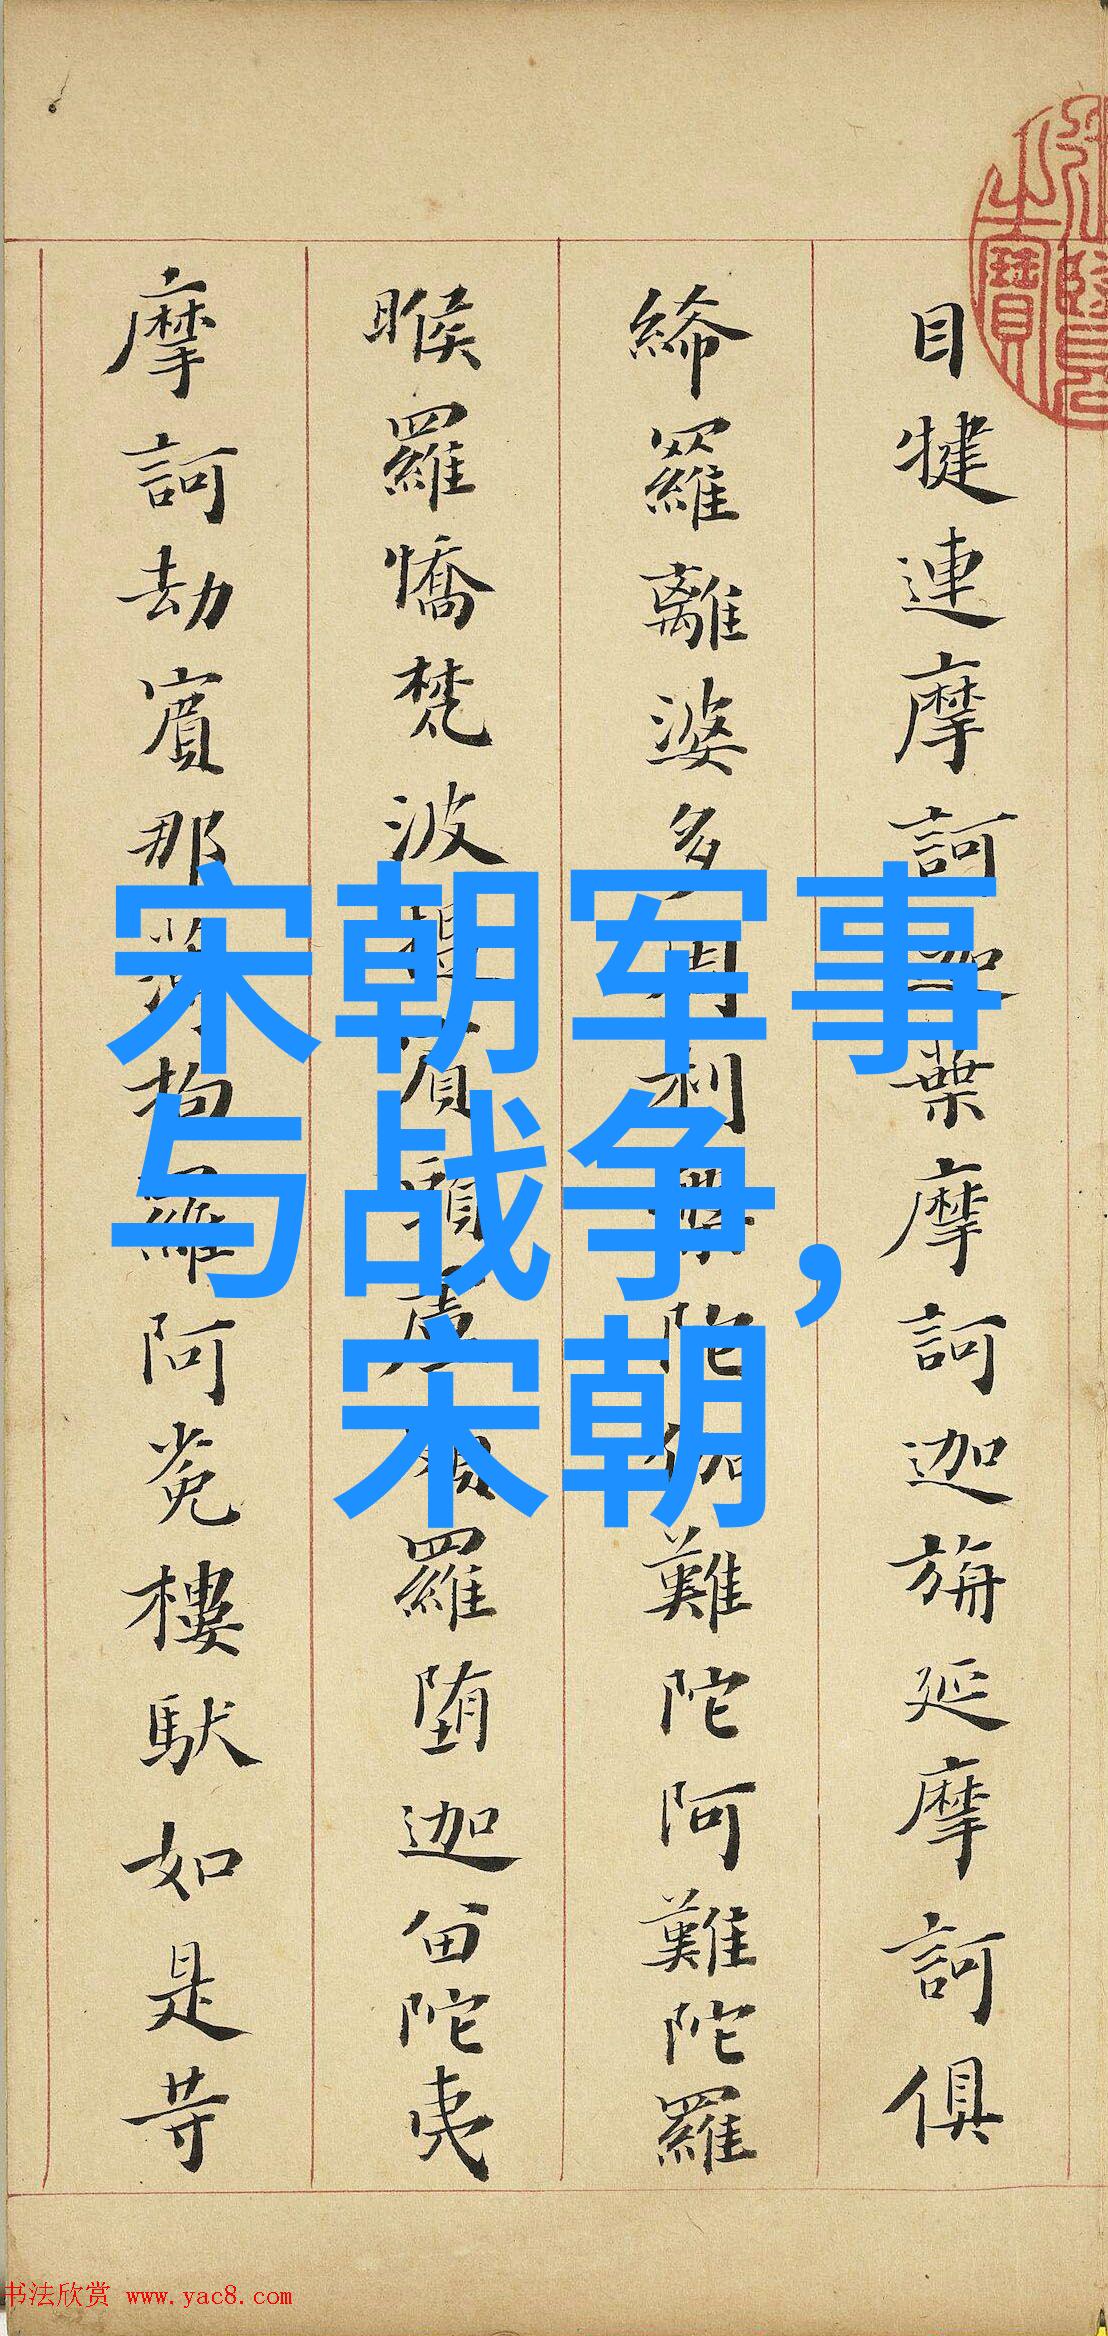 目犍連摩訶迦葉摩訶迦旃延摩訶俱
絺羅離婆多周利槃陀伽難陀阿難陀羅
睺羅憍梵波提賓頭盧頗羅墮迦留陀夷
摩訶劫賓那薄拘羅阿㝹樓馱如是等
宋朝军事
与战争,
宋朝
书法欣赏 www.yac8.com